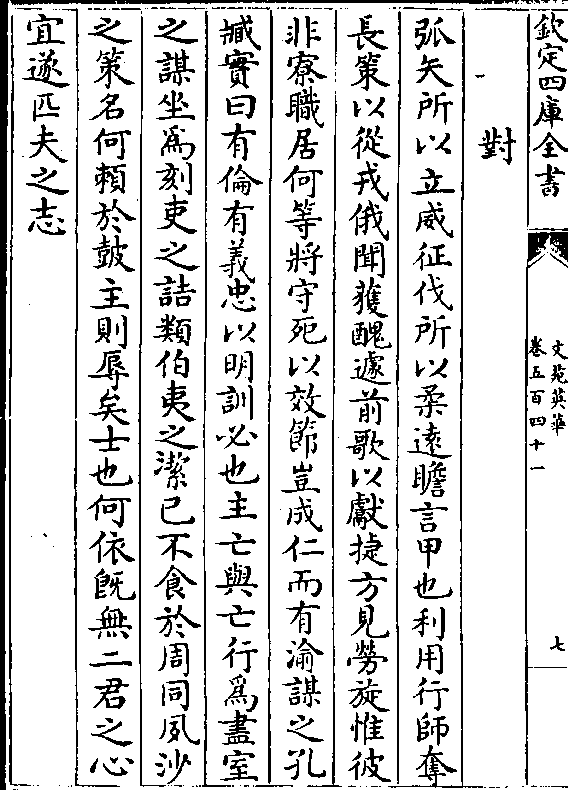 欽定四庫全書
文苑英華
卷五百四十一
七
對
弧矢所以立威征伐所以柔逺瞻言甲也利用行師奪
長策以從戎俄聞獲醜遽前歌以獻捷方見勞旋惟彼
非寮職居何等將守死以效節豈成仁而有渝謀之孔
臧實曰有倫有義忠以明訓必也主亡與亡行為盡室
之謀坐為刻吏之詰類伯夷之潔已不食於周同夙沙
之策名何頼於皷主則辱矣士也何依既無二君之心
宜遂匹夫之志